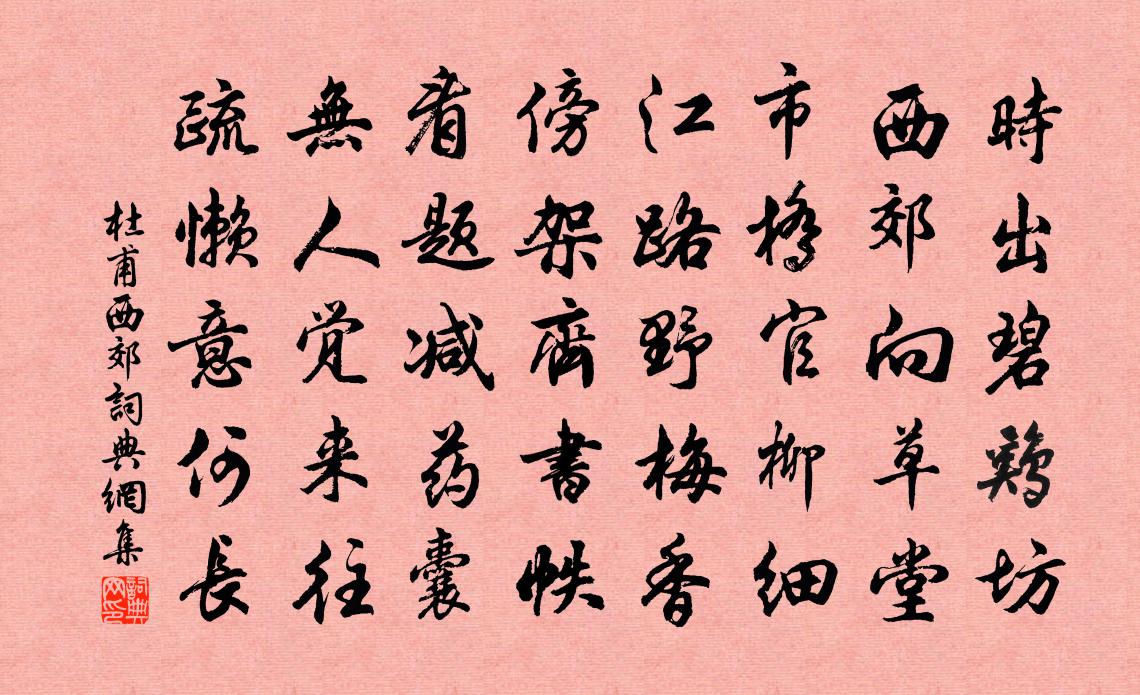 時出碧鷄坊
西郊向草堂
市橋官柳細
江路野梅香
傍架齊書帙
看題减药囊
無人觉来往
疏懒意何長
杜甫西郊詞典網集
詞典网印